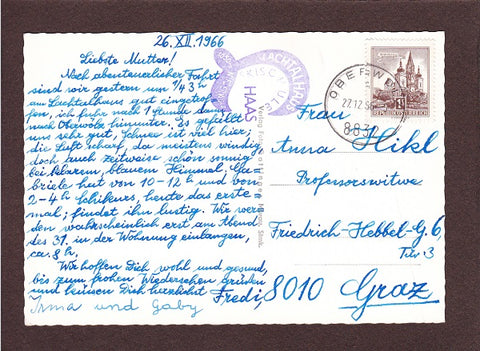 26. XII. 1966
Liebste Mutter!
Nach abenteuerlicher Fahrt
sind wir gestern um ½ 3 h
am Lachtalhaus gut eingetrof-
fen, ich fuhr nach 1 Stunde dann
nach Oberwölz hinunter. Es gefällt
uns sehr gut, Schnee ist viel hier;
die Luft scharf, da meistens windig,
doch auch zeitweise schön sonnig
bei klarem, blauem Himmel. Ga-
briele hat von 10-12 h und von
2-4 h Schikurs, heute das erste
mal; findet ihn lustig. Wir wer-
den wahrscheinlich erst am Abend
des 31. in der Wohnung einlangen,
ca. 8 h.
Wir hoffen Dich wohl und gesund,
bis zum frohen Wiedersehen grüßen
und küssen Dich herzlichst Fredi,
Irma und Gaby
LACHTALHAUS
HAAS
OBERW
8832
REPUBLIK ÖSTERREICH
Frau
Anna Hikl
Professorswitwe
Friedrich-Hebbel-G. 6,
Tür 3
8010 Graz